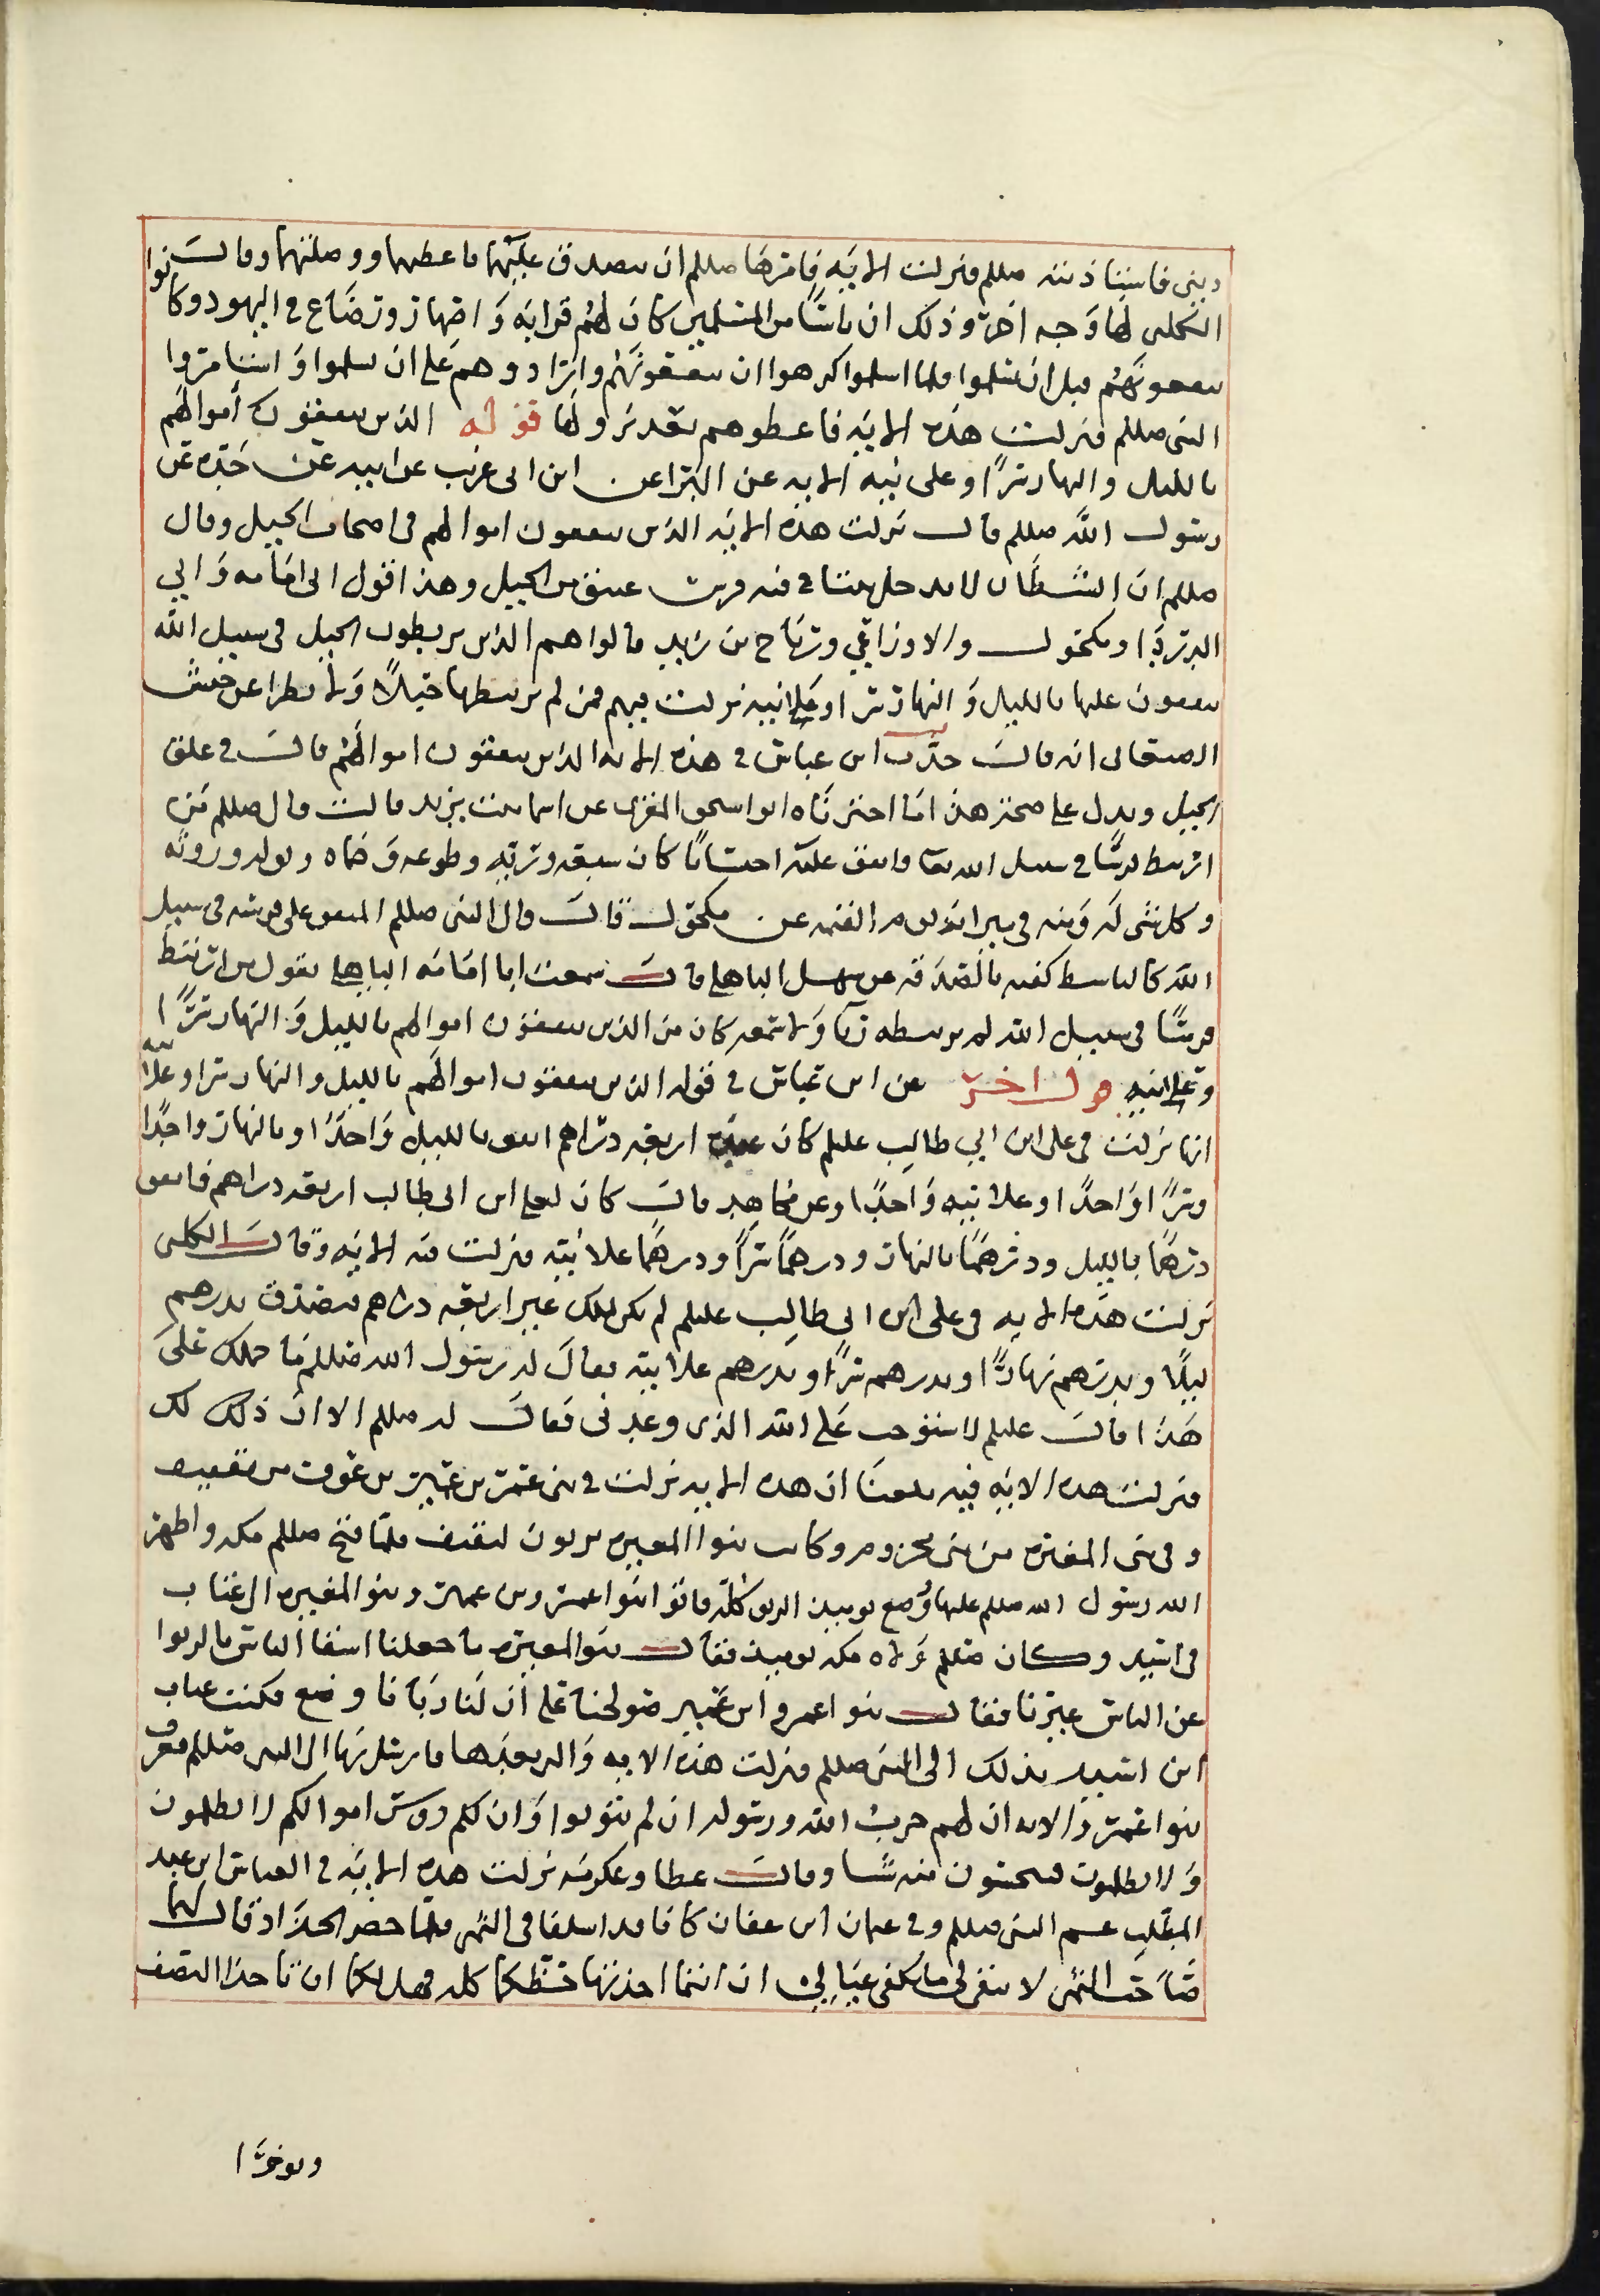 ديني فاستاذنته صللم فنزلت الايه فامرها صللم ان تصدق عليهما فاعطتهما ووصلتهما وقال
الكلبي لها وجه اخر وذلك ان ناسًا من المسلمين كان لهم قرابه واصهار ورضاع في اليهود وكانوا
ينفعونهم قبل ان يسلموا فلما اسلموا كرهوا ان ينفقونهم وارادوهم على ان يسلموا واستامروا
النبي صللم فنزلت هذه الايه فاعطوهم بعد نزولها قوله الذين ينفقون أموالهم
بالليل والنهار سرًا وعلانيه الايه عن البرا عن ابن ابي عريب عن ابيه عن جده عن
رسول الله صللم قال نزلت هذه الايه الذين ينفقون اموالهم في اصحاب الخيل وقال
صللم ان الشيطان لا يدخل بيتا فيه فرس عتيق من الخيل وهذا قول ابي امامه وابي
الدردا ومكحول والاوزاعي ورباح بن زيد قالوا هم الذين يربطون الخيل في سبيل الله
ينفقون عليها بالليل والنهار سرا وعلانيه نزلت فيهم فمن لم يربطها خيلاً ولا بطرا عن حنش
الصنعاني انه قال حدث ابن عباس في هذه الايه الذين ينفقون اموالهم قال في علف
الخيل ويدل على صحة هذا ما اخبرناه ابو اسحق المقري عن اسما بنت يزيد قالت قال صللم من
ارتبط فرسًا في سبيل الله تعا وانفق عليه احتسابًا كان شبعه وريه وظمؤه وبوله وروثه
وكل شي له ومنه في ميزانه يوم القيمه عن مكحول قال قال النبي صللم المنفق على فرسه في سبيل
الله كالباسط كفيه بالصدقه عن سهل الباهلي قال سمعت ابا امامه الباهلي يقول من ارتبط
فرسًا في سبيل الله لم يربطه ريا ولا سمعه كان من الذين ينفقون اموالهم بالليل والنهار سرًا
وعلانيه قول اخر عن ابن عباس في قوله الذين ينفقون اموالهم بالليل والنهار سرا وعلانيه
انها نزلت في علي ابن ابي طالب عليلم كان عنده اربعه دراهم انفق بالليل واحدًا وبالنهار واحدًا
وسرًا واحدًا وعلانيه واحدًا وعن مجاهد قال كان لعلي ابن ابي طالب اربعه دراهم فانفق
درهمًا بالليل ودرهمًا بالنهار ودرهمًا سرًا ودرهمًا علانيه فنزلت فيه الايه وقال الكلبي
نزلت هذه الايه في علي ابن ابي طالب عليلم لم يكن يملك غير اربعه دراهم فتصدق بدرهم
ليلًا وبدرهم نهارًا وبدرهم سرًا وبدرهم علانيه فقال له رسول الله صللم ما حملك على
هذا قال عليلم لاستوجب على الله الذي وعدني فقال له صللم الا ان ذلك لك
فنزلت هذه الايه فيه بلغنا ان هذه الايه نزلت في بني عمرو بن عمير بن عوف من ثقيف
وفي بني المغيره من بني مخزوم وكانت بنوا المغيره يربون لثقيف فلما فتح صللم مكه واظهر
الله رسول الله صللم عليها وضع يوميذ الربو كله فاتوا بنوا عمرو بن عمير وبنو المغيره الى عتاب
بن اسيد وكان صللم ولاه مكه يوميذ فقال بنو المغيره ما جعلنا اشقا الناس بالربوا
عن الناس غيرنا فقال بنوا عمرو ابن عمير صولحنا على ان لنا ربانا وضع فكتب عتاب
ابن اسيد بذلك الى النبي صللم فنزلت هذه الايه والتي بعدها فارسل بها الى النبي صللم فعرف
بنوا عمرو الايه ان لهم حرب الله ورسوله ان لم يتوبوا وان لكم روس اموالكم لا تظلمون
ولا تظلمون فتبخسون منه شيا وقال عطا وعكرمه نزلت هذه الايه في العباس ابن عبد
المطلب عم النبي صللم وفي عثمان ابن عفان كانا قد اسلفا في التمر فلما حضر الجذاذ قال لهما
صاحب التمر لا يبقى لي ما يكفي عيالي ان انتما اخذتما حظكما كله فهل لكما ان تاخذا النصف
ويوخرا